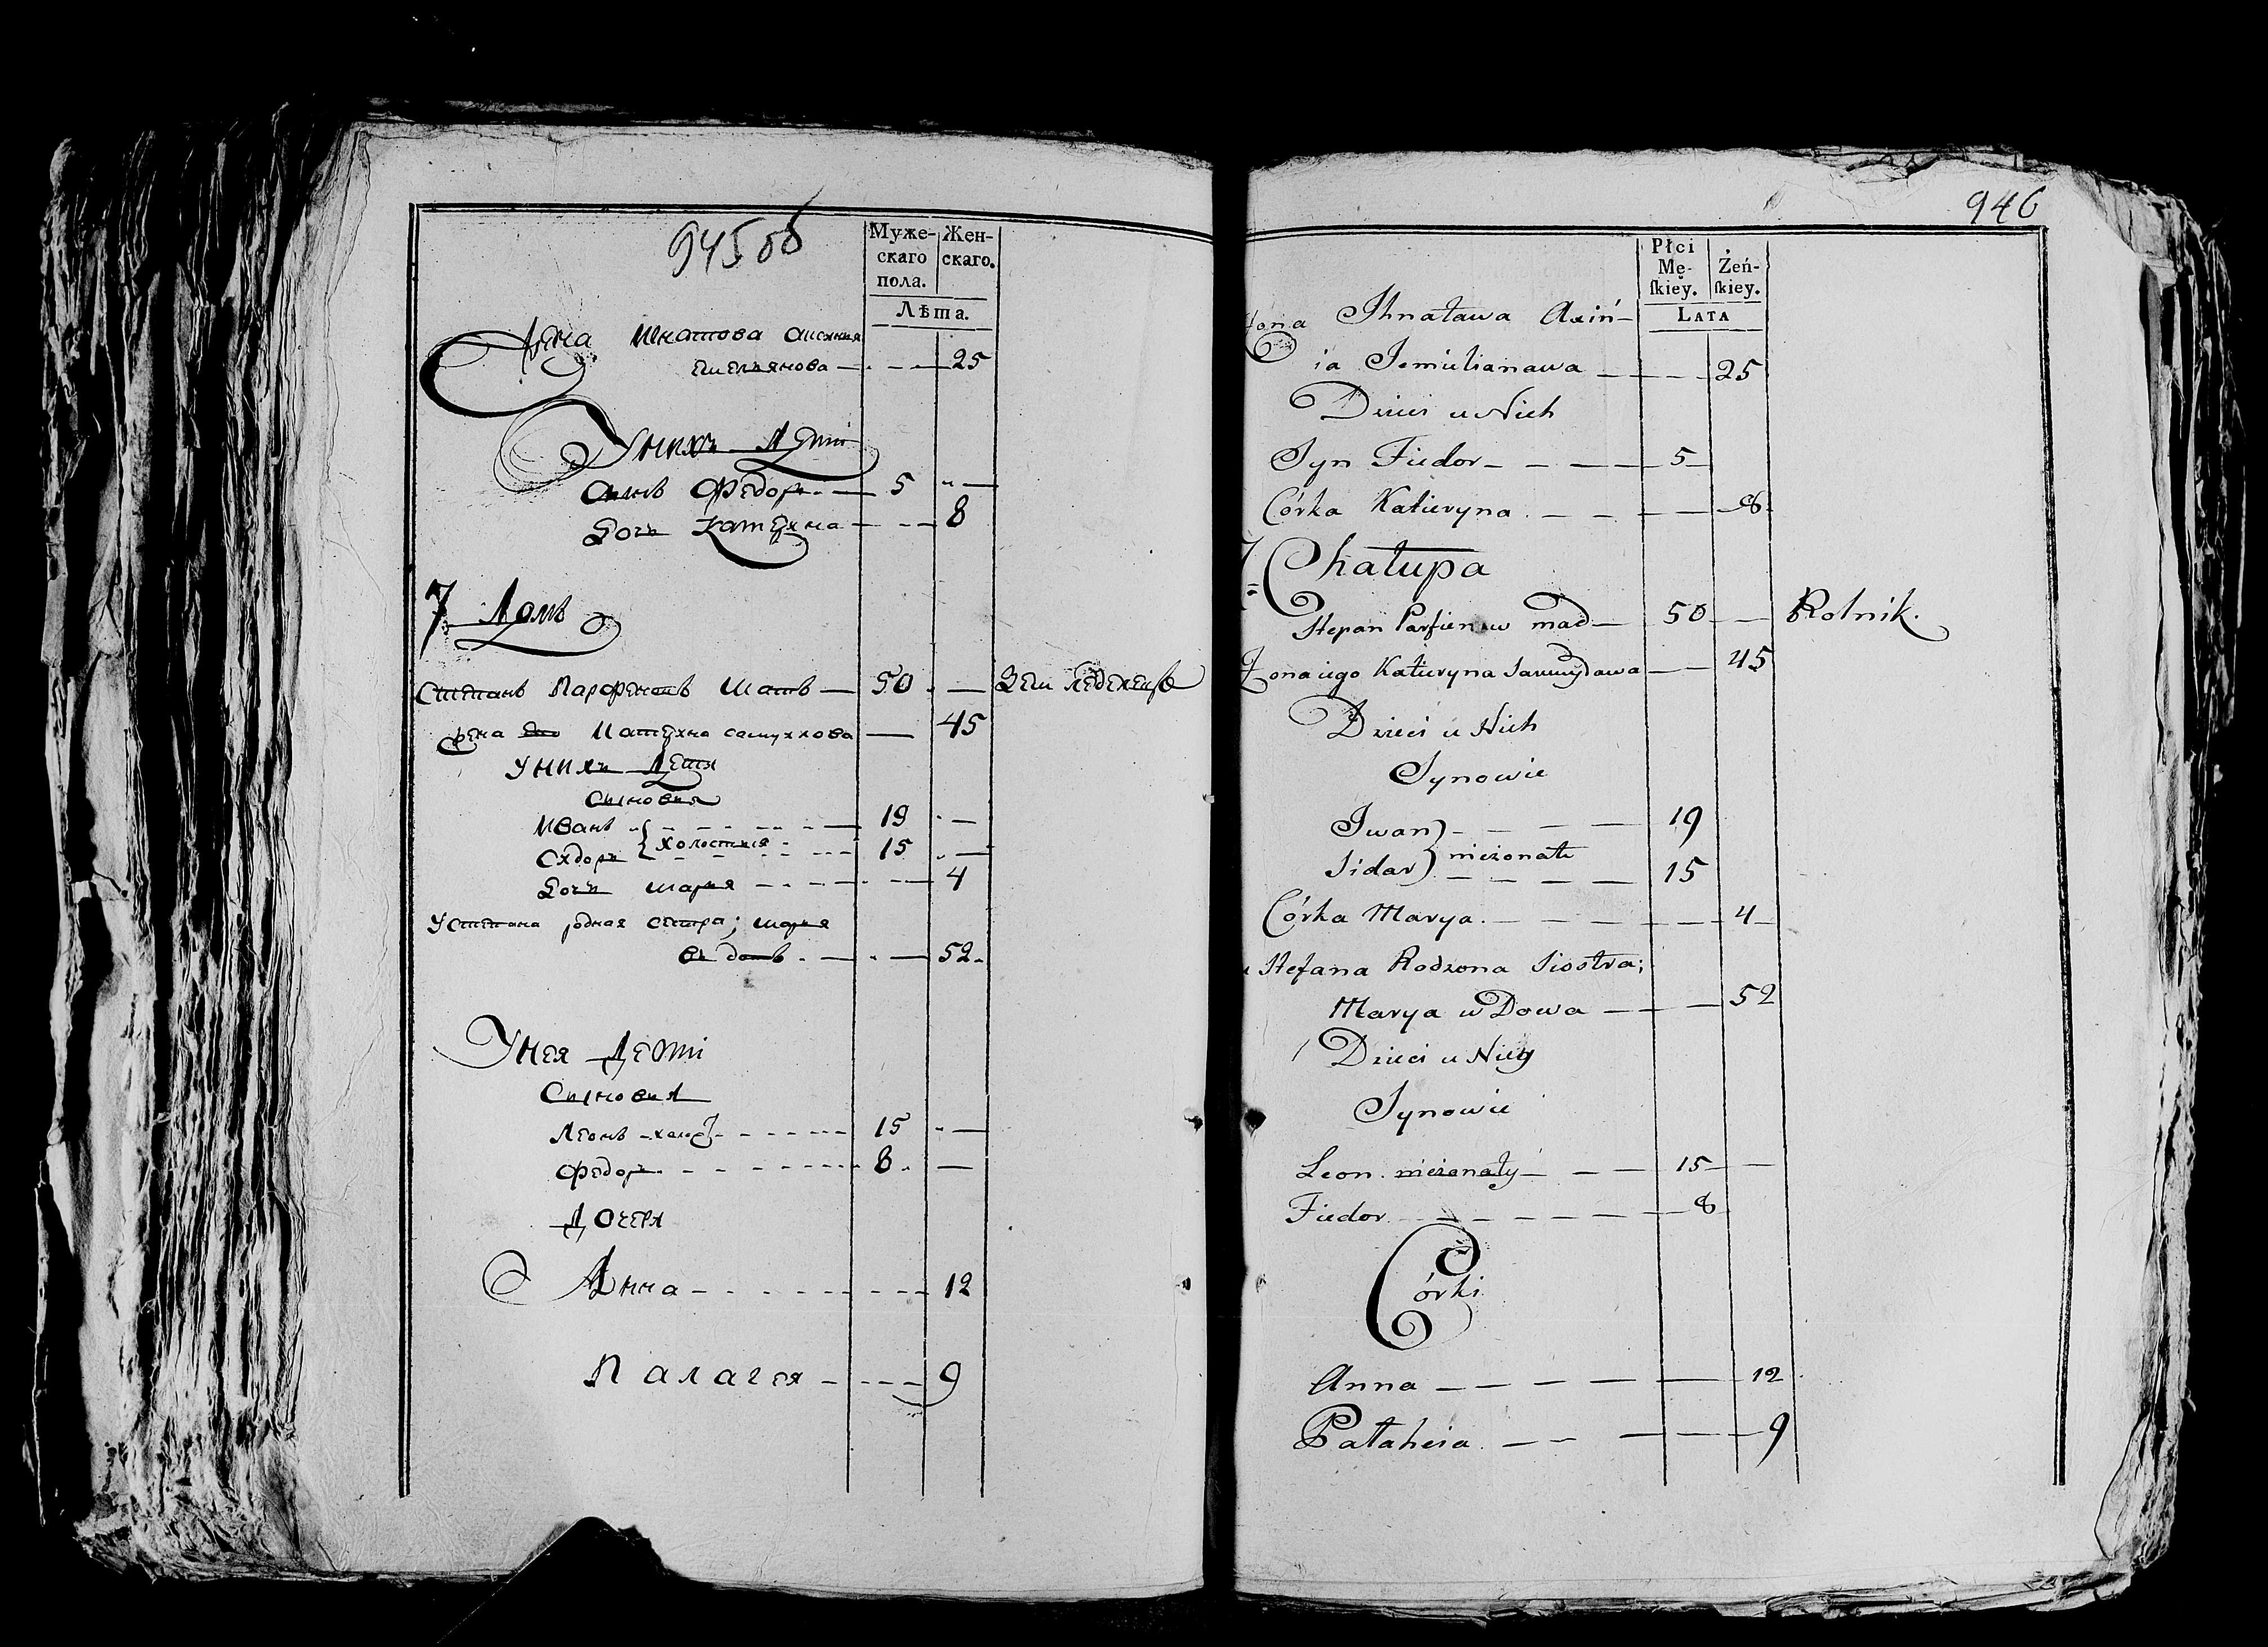 945 об
Муже-
скаго
пола.
Жен-
скаго.
Лѣта.
жена Игнатова Аксиния
Емельянова — 25
У нихъ Дети
Сынъ Федоръ — 5 —
Дочь Катерина — 8
7 Домъ
Степанъ Парфеновъ — 50 — Земледелецъ
жена его Катерина — 45
У нихъ Дети
Сыновья
Иванъ — 19 —
холостыя
Сидоръ — 15 —
Дочь Марья — 4
У Степана родная сестра; Марья
вдова — 52
У Нея Дети
Сыновья
Леонъ — холос — 15 —
Федоръ — 8 —
Дочери
Анна — 12
Палагея — 9
946
Płci
Mę-
ſkiey.
Żeń-
ſkiey.
Lata
Żona Ihnatawa Axiń-
ia Jemielianawa — 25
Dzieci u Nich
Syn Fiedor — 5 —
Córka Katieryna — 8
7 Chałupa
Stepan Parfienow — 50 — Rolnik.
Żona iego Katieryna — 45
Dzieci u Nich
Synowie
Iwan — 19
nieżonate
Sidar — 15
Córka Marya — 4
u Stefana Rodzona Siostra;
Marya wDowa — 52
Dzieci u Niey
Synowie
Leon nieżonaty — 15 —
Fiedor — 8
Córki
Anna — 12
Pałaheia — 9